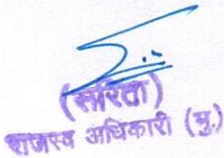 (सरिता)
राजस्व अधिकारी (मु.)